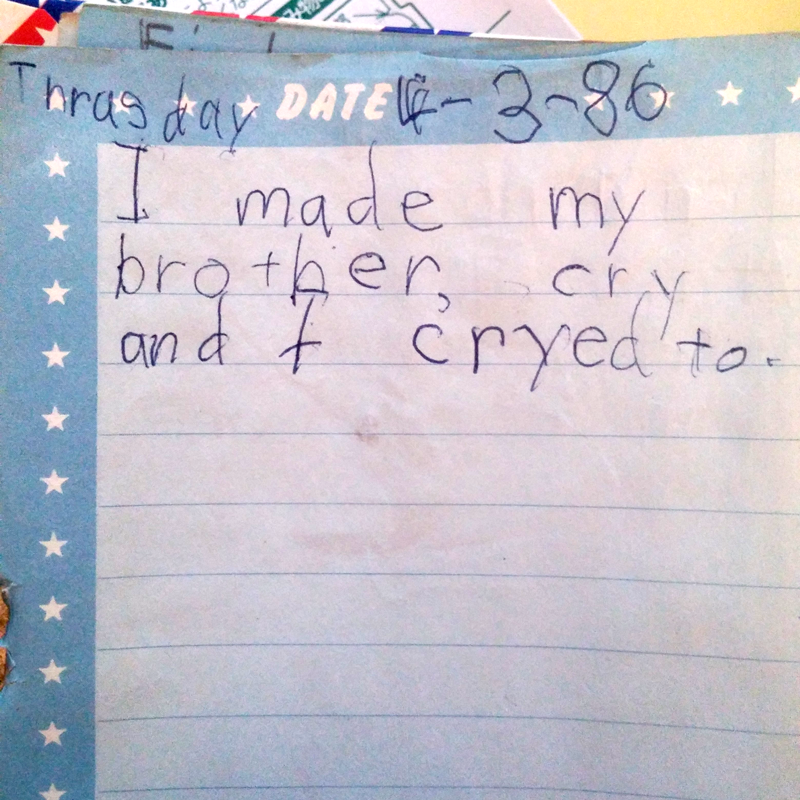 Thrasday DATE 4-3-86
I made my
brother, cry
and I cryed to.